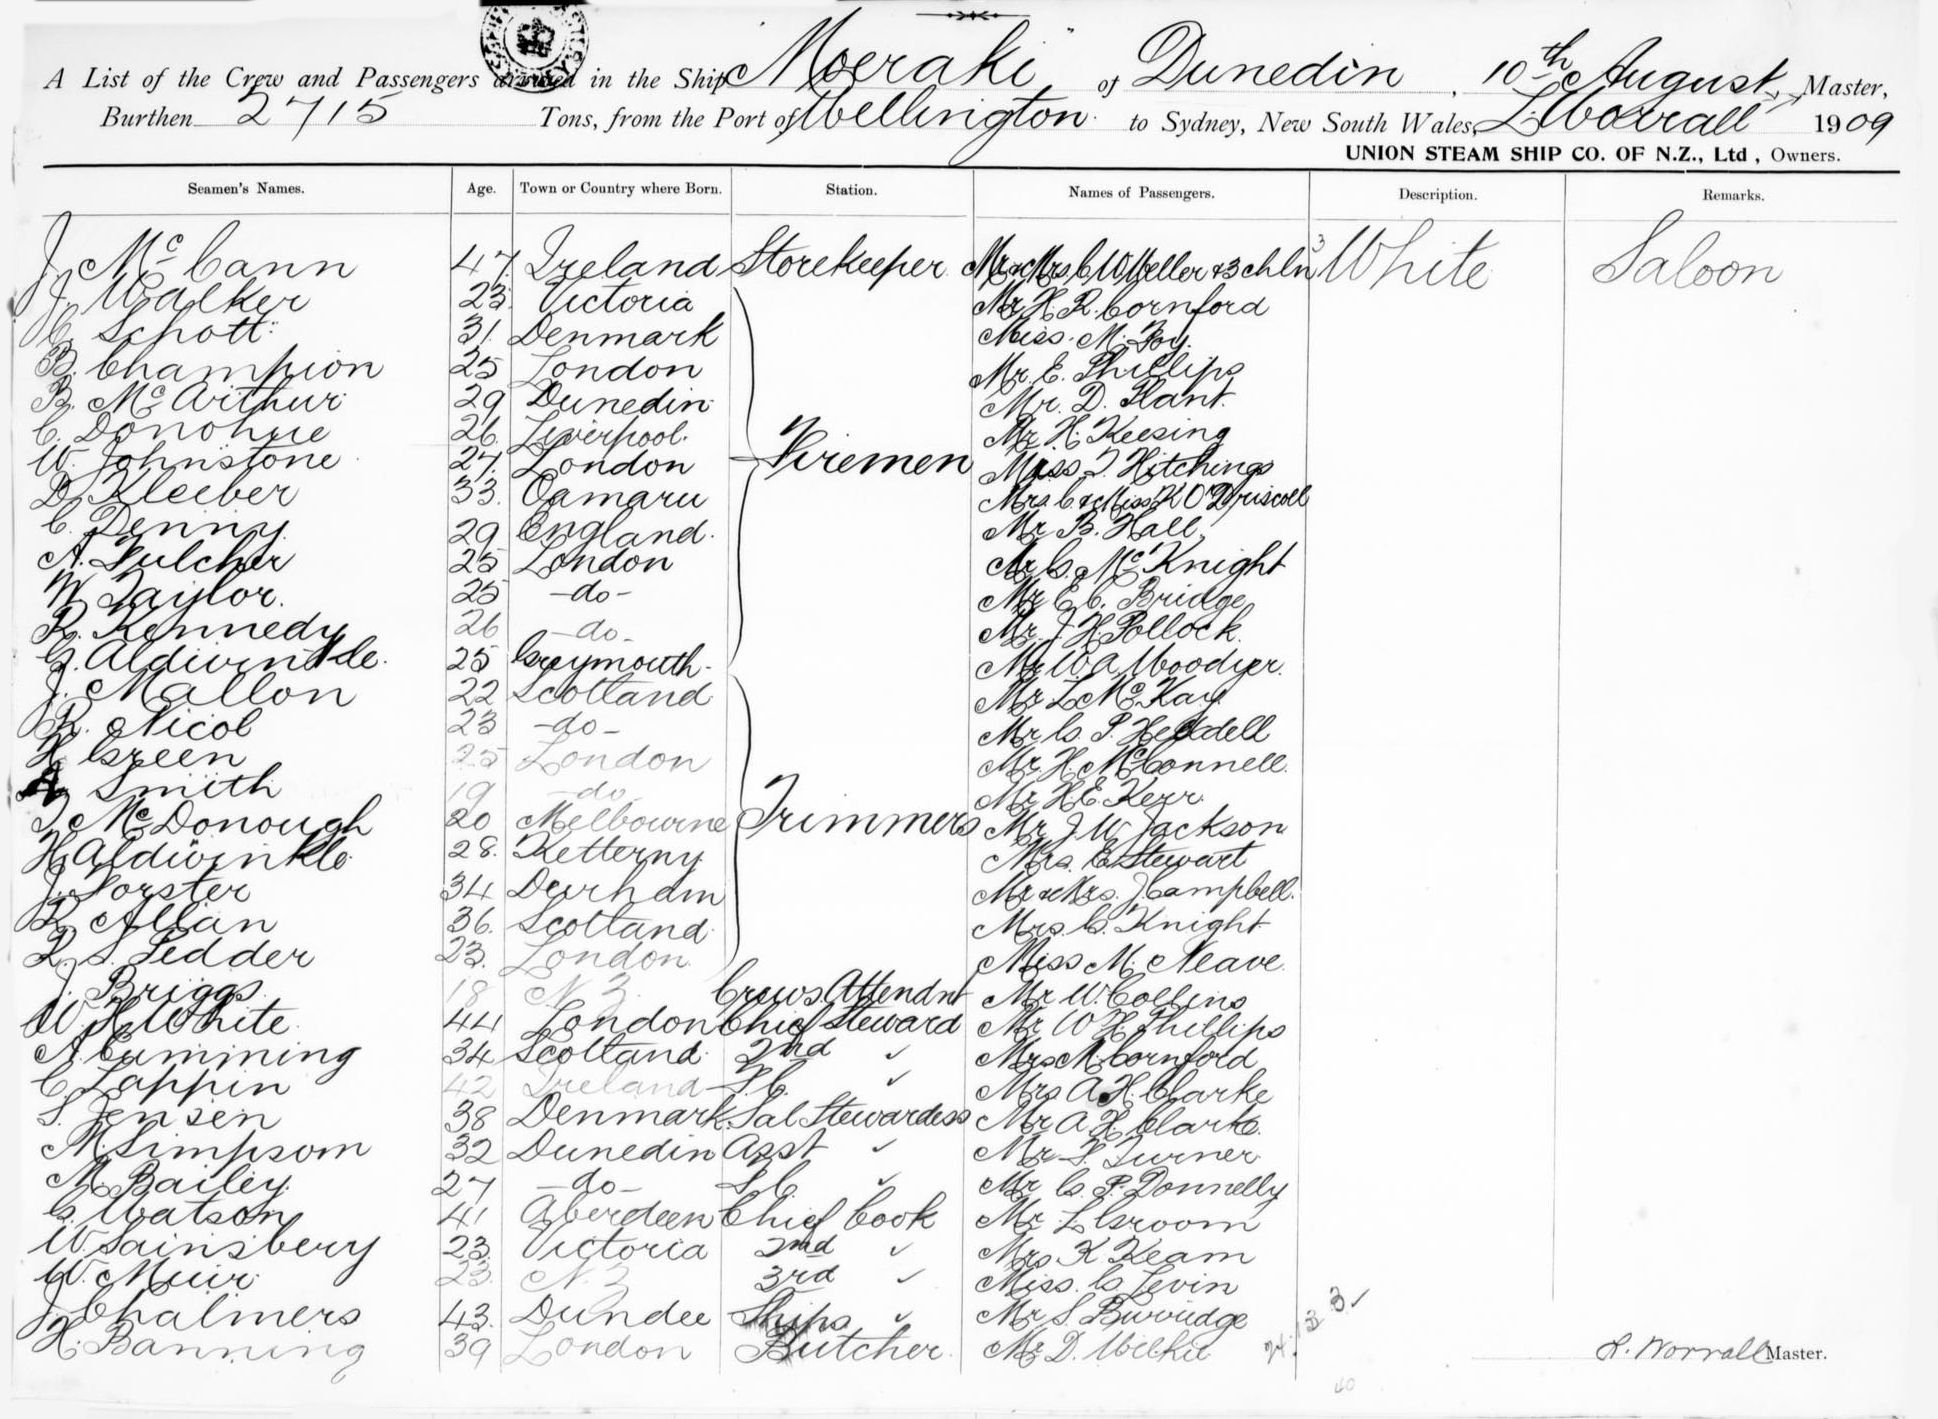 A List of the Crew and Passengers arrived in the Ship "Moeraki" of Dunedin, 10th August, Master,
Burthen 2715 Tons, from the Port of Wellington to Sydney, New South Wales, L Worrall 1909
UNION STEAM SHIP CO. OF N.Z., Ltd, Owners.
Seamen's Names. Age. Town or Country where Born. Station. Names of Passengers. Description. Remarks.
J. McCann 47. Ireland Storekeeper Mr & Mrs C W Weller & 3 chln 3 White Saloon
J. Walker 23. Victoria Mr H. R. Cornford
C. Schott 31. Denmark Miss. M. Foy.
B. Champion 25 London Mr. E. Phillips
B. McArthur 29 Dunedin Mr. D. Plant.
C. Donohue 26. Liverpool. Mr H. Keesing
W. Johnstone 27. London Firemen Miss I Hitchings
D. Kleeber 33. Oamaru Mrs. C & Miss K O'Driscoll
C. Denny. 29 England. Mr B. Hall.
A. Fulcher 25 London Mr C. McKnight
W. Taylor. 25 -do- Mr E C. Bridge
R. Kennedy 26 -do- Mr J H. Pollock.
G. Aldwinkle. 25 Greymouth- Mr W. A. Woodger.
J. Mallon 22 Scotland Mr L McKay.
R. Nicol 23 -do- Mr C. P. Heddell
H. Green 25 London Mr H. McConnell.
Smith 19 do Mr H. E. Kerr.
J. McDonough 20 Melbourne Trimmers Mr J. W. Jackson
H Aldwinkle 28. Ketterny Mrs. E Stewart
J. Forster 34 Durham Mr & Mrs. J. Campbell.
R. Allan 36. Scotland. Mrs. C. Knight
R S. Pedder 23. London Miss M. Neave.
J. Briggs 18 N Z. Crews Attendnt Mr W. Collins
W. H White. 44 London Chief Steward Mr W H. Phillips
A. Cumming 34 Scotland. 2nd ✓ Mrs M. Cornford
C. Lappin 42 Ireland S. C. ✓ Mrs A. H. Clarke
S. Jensen 38 Denmark. Sal Stewardess Mr A H. Clarke.
M. Simpson 32 Dunedin Asst ✓ Mr F. Turner
M. Bailey. 27 -do- S C. ✓ Mr C. P. Donnelly
G. Watson 41 Aberdeen Chief Cook Mr. L Groom
W. Sainsberry 23. Victoria 2nd ✓ Mrs K Keam
W. Muir 23. N. Z 3rd ✓ Miss. C. Levin
J. Chalmers 43. Dundee Ships ✓ Mr S. Burridge 3 ✓
H. Banning 39 London Butcher. Mr D. Wilkie 24. 13
L. Worrall Master.
40